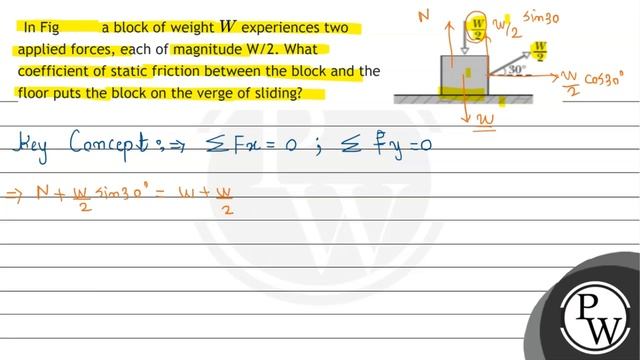 In Fig a block of weight W experiences two
applied forces, each of magnitude W/2. What
coefficient of static friction between the block and the
floor puts the block on the verge of sliding?
N
W/2
W/2 sin30
W/2
30°
W/2 cos30°
W
Key Concept :⇒ ΣFx = 0 ; ΣFy = 0
⇒ N + W/2 sin30° = W + W/2
PW
PW